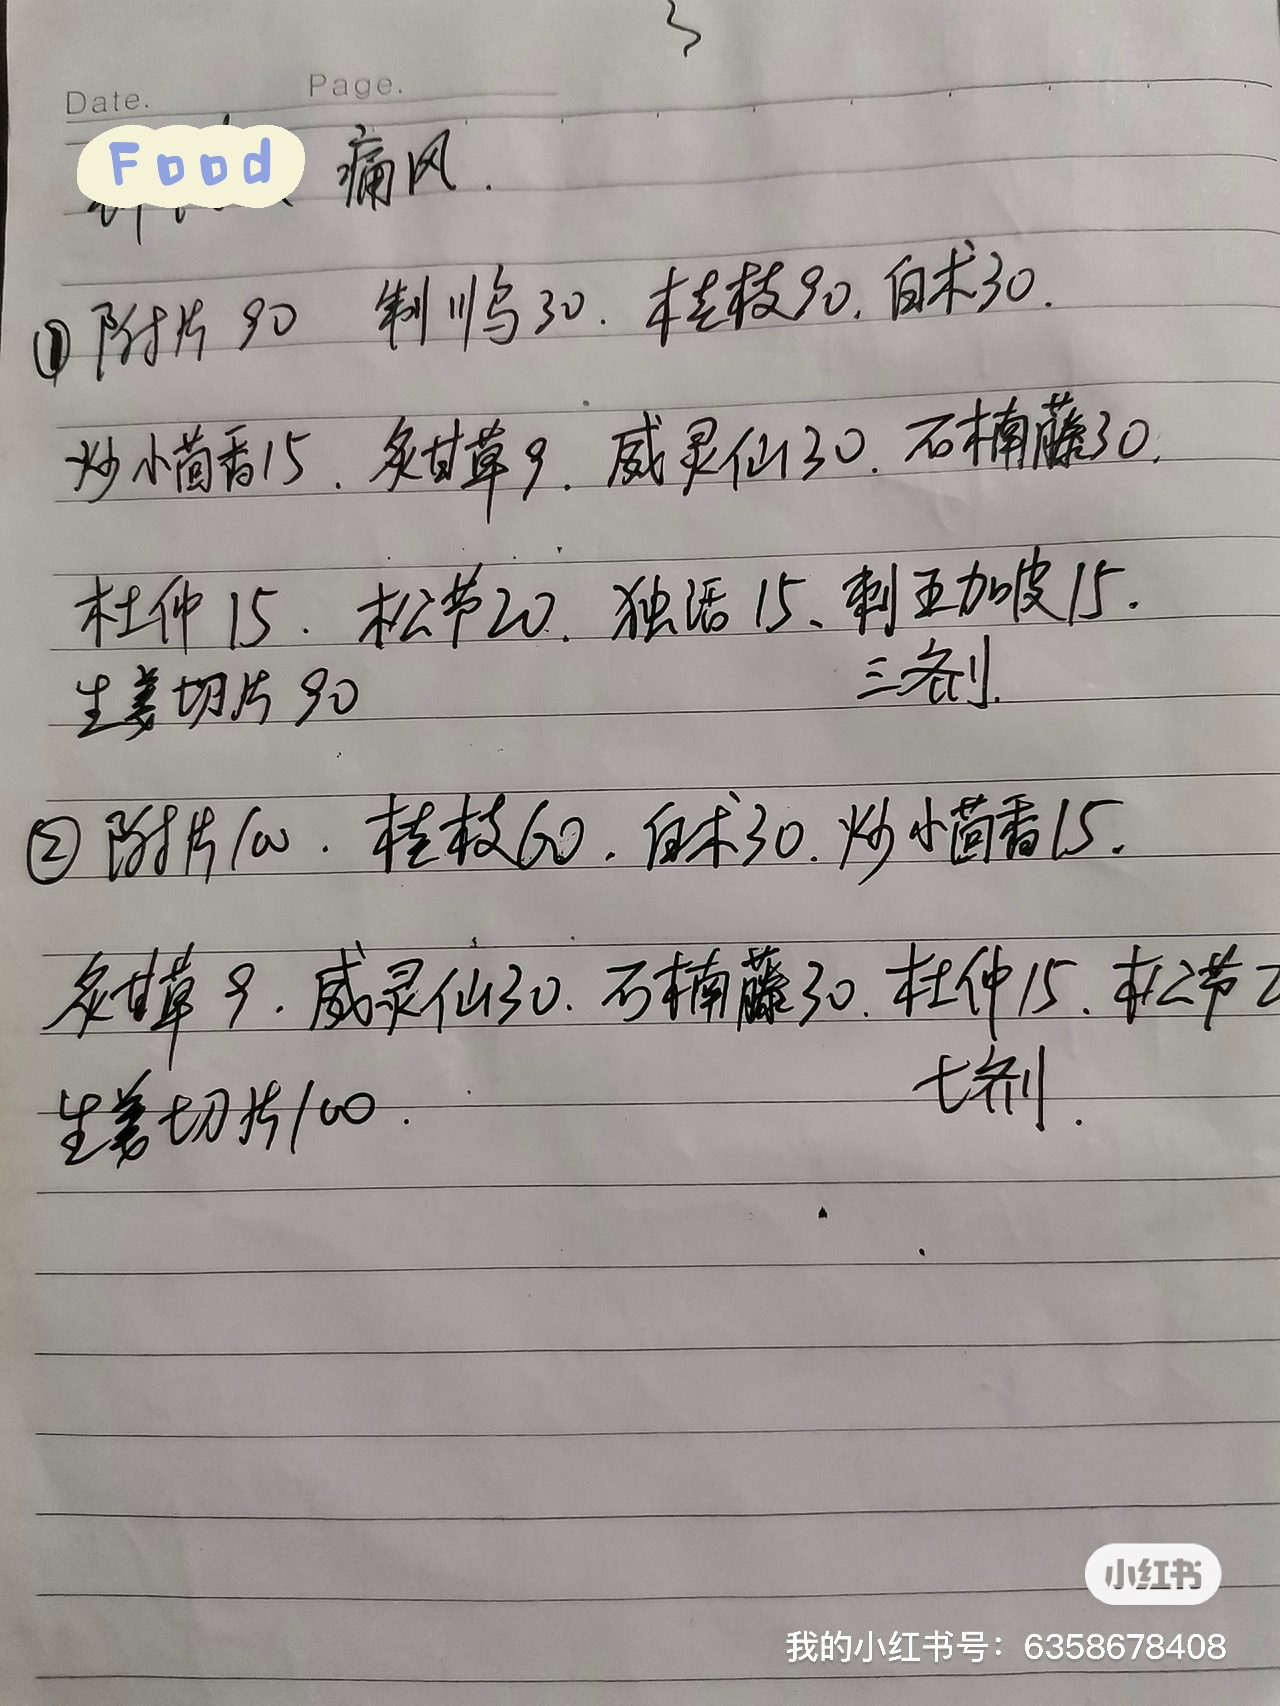 Date.
Page.
Food 痛风.
① 附片 90 制川乌30. 桂枝90. 白术30.
炒小茴香15. 炙甘草9. 威灵仙30. 石楠藤30.
杜仲15. 松节20. 独活15、刺五加皮15.
生姜切片90 三剂.
② 附片100. 桂枝60. 白术30. 炒小茴香15.
炙甘草9. 威灵仙30. 石楠藤30. 杜仲15. 松节2
生姜切片100. 七剂.
小红书
我的小红书号：6358678408